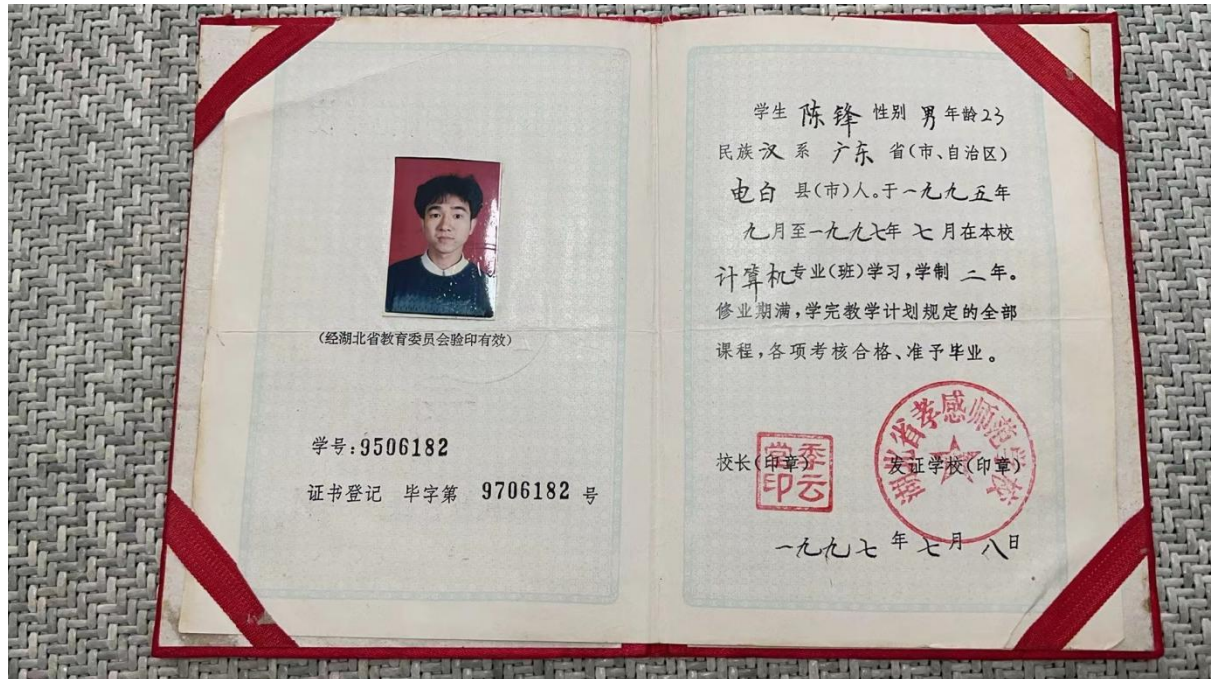 (经湖北省教育委员会验印有效)
学号:9506182
证书登记 毕字第 9706182 号
学生 陈锋 性别 男 年龄23
民族 汉 系 广东 省(市、自治区)
电白 县(市)人。于一九九五年
九月至一九九七年 七 月在本校
计算机专业(班)学习,学制 二 年。
修业期满,学完教学计划规定的全部
课程,各项考核合格、准予毕业。
校长(印章) 发证学校(印章)
湖北省孝感师范学校
一九九七 年 七 月 八 日